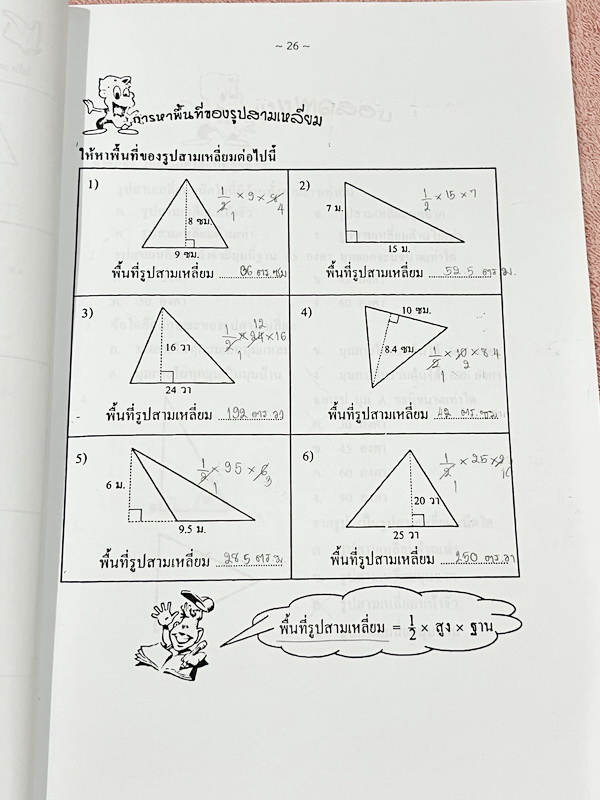 ~ 26 ~
การหาพื้นที่ของรูปสามเหลี่ยม
ให้หาพื้นที่ของรูปสามเหลี่ยมต่อไปนี้
1)
1/2 × 9 × 8
1
4
8 ซม.
9 ซม.
พื้นที่รูปสามเหลี่ยม 36 ตร.ซม
2)
1/2 × 15 × 7
7 ม.
15 ม.
พื้นที่รูปสามเหลี่ยม 52.5 ตร.ม.
3)
12
1/2 × 24 × 16
1
16 วา
24 วา
พื้นที่รูปสามเหลี่ยม 192 ตร.วา
4)
10 ซม.
8.4 ซม.
1/2 × 10 × 8.4
1
พื้นที่รูปสามเหลี่ยม 42 ตร.ซม.
5)
1/2 × 9.5 × 6
1
3
6 ม.
9.5 ม.
พื้นที่รูปสามเหลี่ยม 28.5 ตร.ม
6)
1/2 × 25 × 2
1
10
20 วา
25 วา
พื้นที่รูปสามเหลี่ยม 250 ตร.วา
พื้นที่รูปสามเหลี่ยม = 1/2 × สูง × ฐาน